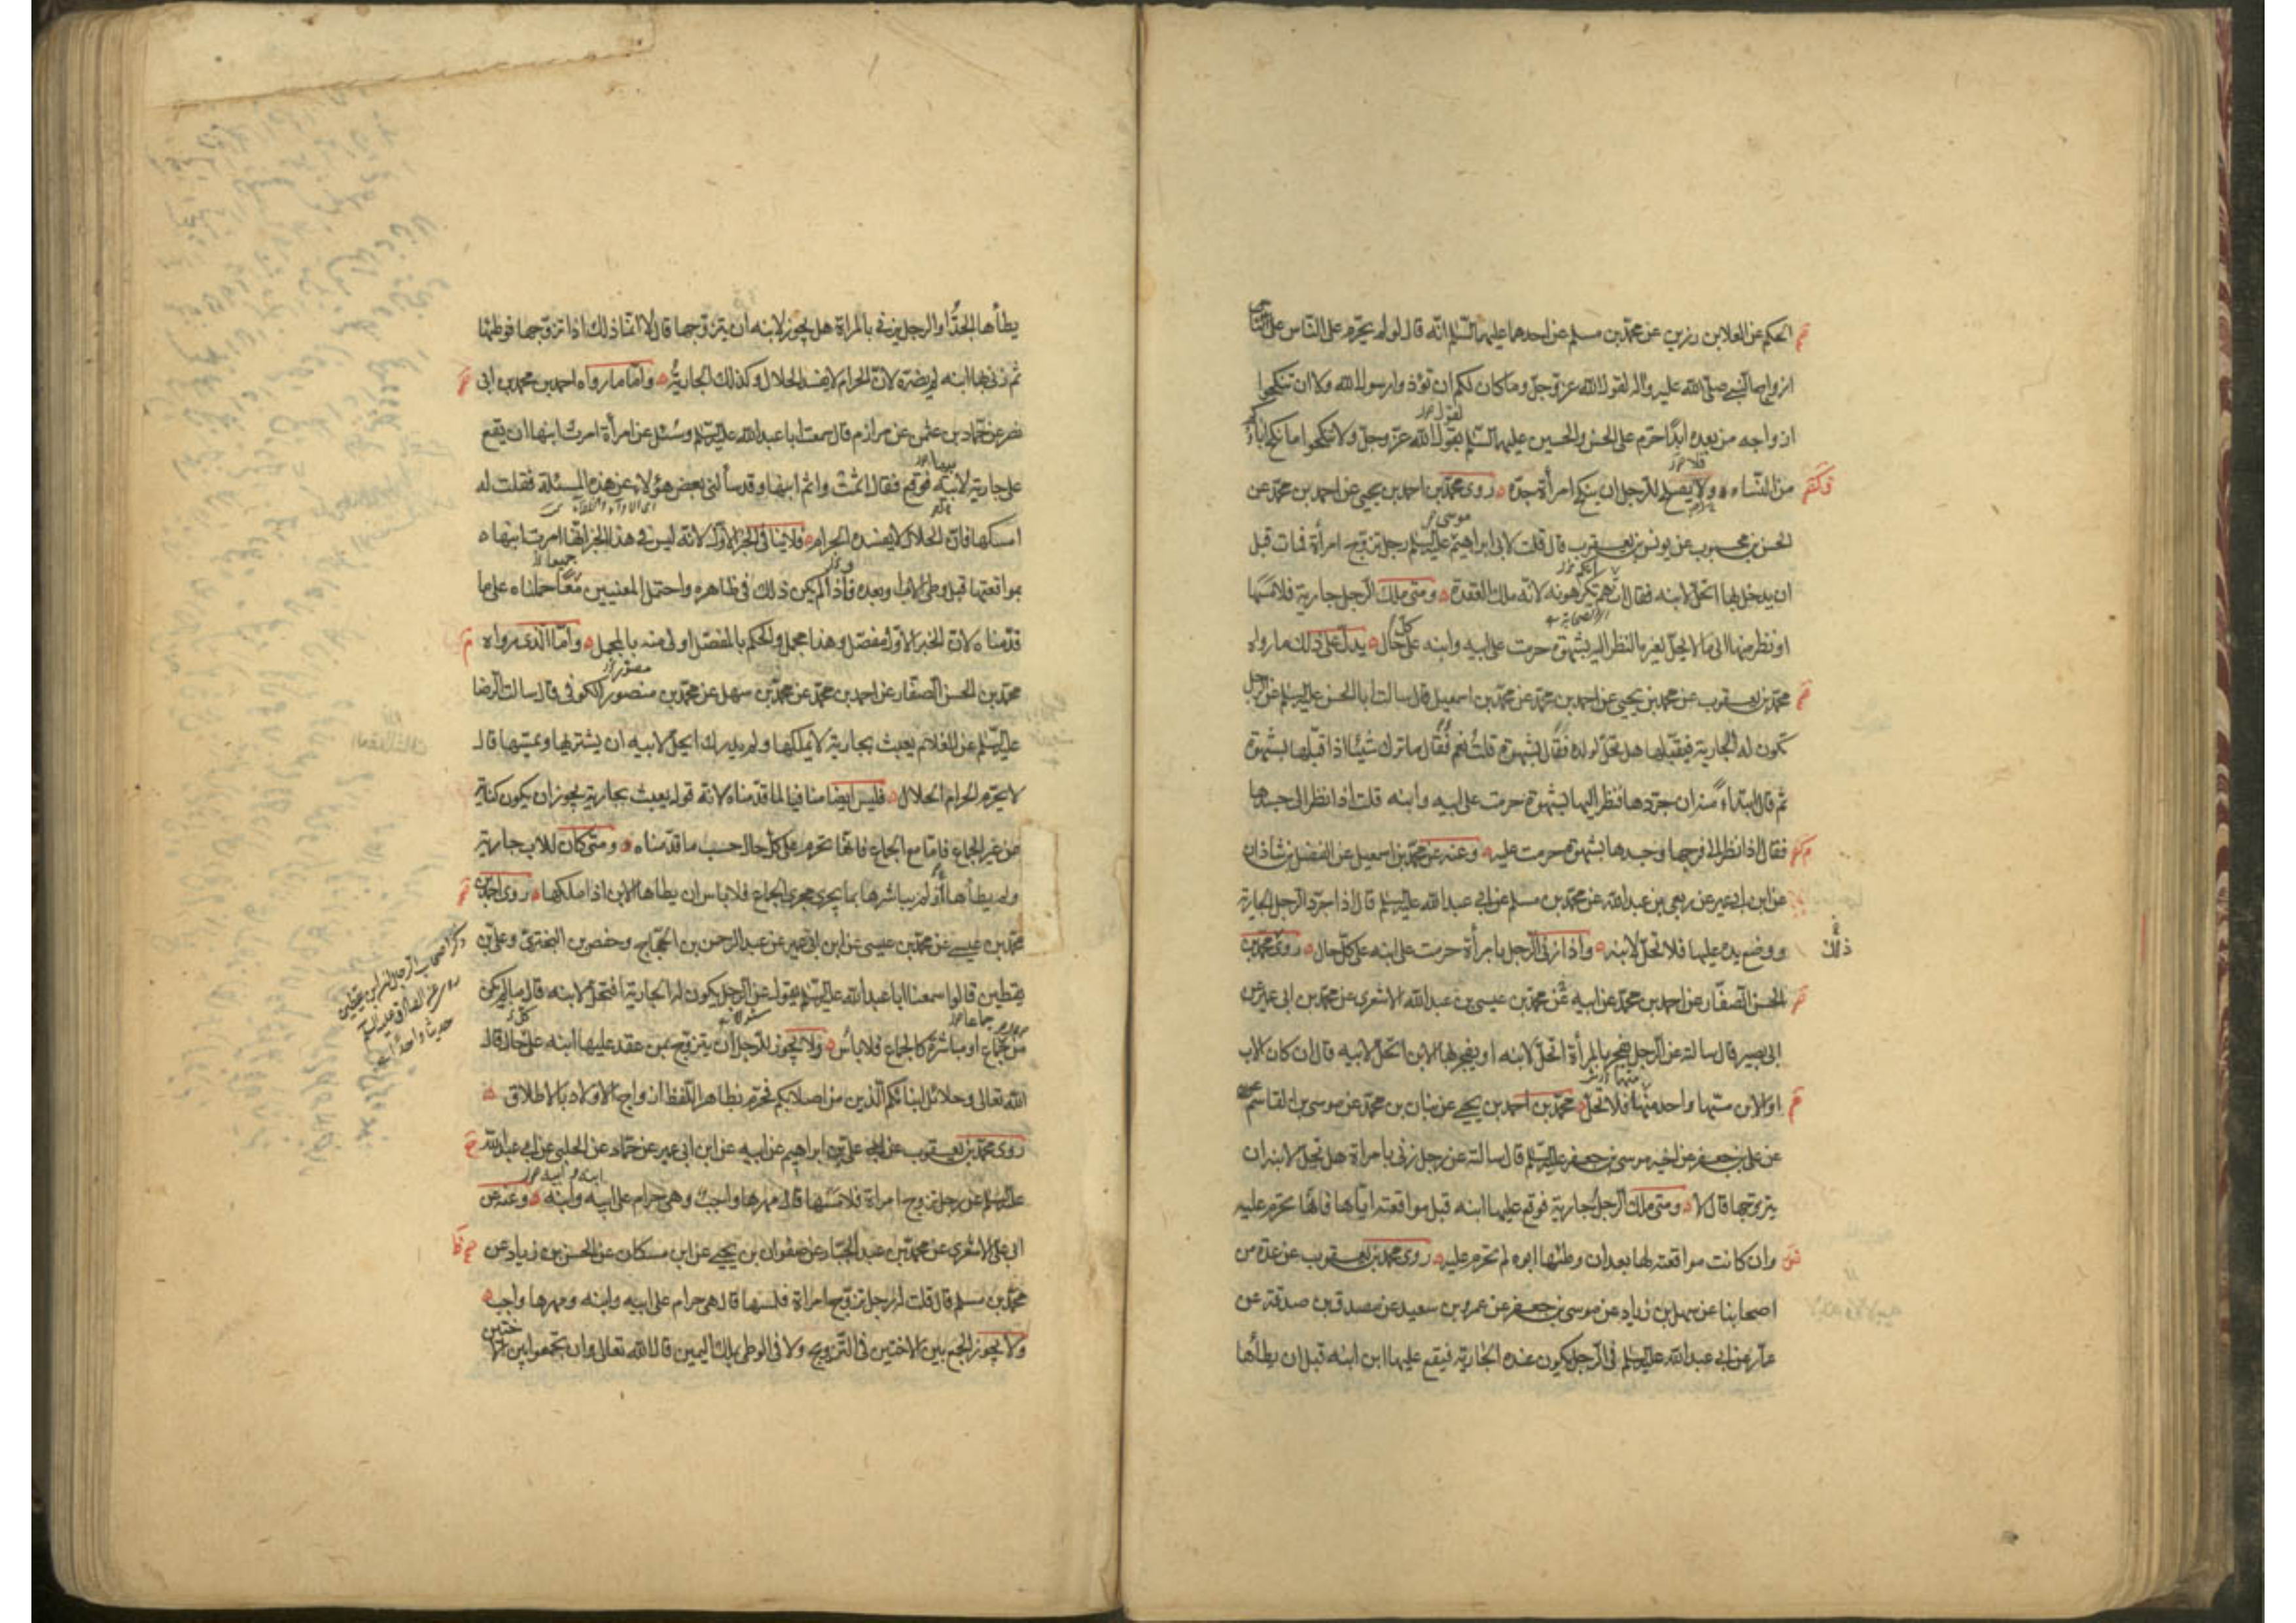 الحكم عن العلا بن رزين عن محمد بن مسلم عن احدهما عليهما السلام انه قال لو لم يحرم على الناس
ازواج النبي صلى الله عليه واله لقول الله عز وجل وما كان لكم ان تؤذوا رسول الله ولا ان تنكحوا
ازواجه من بعده ابدا حرم على الحسن والحسين عليهما السلام بقول الله عز وجل ولا تنكحوا ما نكح اباؤكم
من النساء ولا يصلح للرجل ان ينكح امرأة جده روى محمد بن احمد بن يحيى عن احمد بن محمد عن
الحسن بن محبوب عن يونس بن يعقوب قال قلت لابي ابراهيم عليه السلام رجل تزوج امرأة فمات قبل
ان يدخل بها اتحل لابنه فقال انهم يكرهونه لانه ملك العقدة ومتى ملك الرجل جارية فلامسها
او نظر منها الى ما لا يحل لغيره النظر اليه بشهوة حرمت على ابيه وابنه على حال يدل على ذلك ما رواه
محمد بن يعقوب عن محمد بن يحيى عن احمد بن محمد عن محمد بن اسمعيل قال سالت ابا الحسن عليه السلام عن الرجل
تكون له الجارية فيقبلها هل تحل لولده فقال بشهوة قلت نعم فقال ما ترك شيئا اذا قبلها بشهوة
ثم قال ابتداء منه ان جردها فنظر اليها بشهوة حرمت على ابيه وابنه قلت اذا نظر الى جسدها
فقال اذا نظر الى فرجها وجسدها بشهوة حرمت عليه وعنه عن محمد بن اسمعيل عن الفضل بن شاذان
عن ابن ابي عمير عن ربعي بن عبد الله عن محمد بن مسلم عن ابي عبد الله عليه السلام قال اذا جرد الرجل الجارية
ووضع يده عليها فلا تحل لابنه واذا زنى الرجل بامرأة حرمت على ابنه على كل حال روى محمد بن
الحسن الصفار عن احمد بن محمد عن ابيه عن محمد بن عيسى بن عبد الله الاشعري عن محمد بن ابي عمير عن
ابي بصير قال سالته عن الرجل يفجر بالمرأة اتحل لابنه او يفجر بها الابن اتحل لابيه قال ان كان الاب
او الابن مسها واحد منهما فلا تحل محمد بن احمد بن يحيى عن بنان بن محمد عن موسى بن القاسم
عن علي بن جعفر عن اخيه موسى بن جعفر عليه السلام قال سالته عن رجل زنى بامراة هل تحل لابنه ان
يتزوجها قال لا ومتى ملك الرجل جارية فوقع عليها ابنه قبل مواقعته اياها فانها تحرم عليه
وان كانت مواقعته لها بعد ان وطئها ابوه لم تحرم عليه روى محمد بن يعقوب عن عدة من
اصحابنا عن سهل بن زياد عن موسى بن جعفر عن عمرو بن سعيد عن مصدق بن صدقة عن
عمار عن ابي عبد الله عليه السلام في الرجل يكون عنده الجارية فيقع عليها ابن ابنه قبل ان يطأها
يطأها الجد او الرجل يزني بالمراة هل يجوز لابنه ان يتزوجها قال لا انما ذلك اذا تزوجها فوطئها
ثم زنى بها ابنه لم يضره لان الحرام لا يفسد الحلال وكذلك الجارية واما ما رواه احمد بن محمد بن ابي
نصر عن حماد بن عثمن عن مرازم قال سمعت ابا عبد الله عليه السلام وسئل عن امرأة امرت ابنها ان يقع
على جارية لابيه فوقع فقال اثمت واثم ابنها وقد سألني بعض هؤلاء عن هذه المسئلة فقلت له
امسكها فان الحلال لا يفسده الحرام فلا ينافي الخبر الاول لانه ليس في هذا الخبر انها امرت ابنها
بمواقعتها قبل وطى الاب او بعده فاذا لم يكن ذلك في ظاهره واحتمل المعنيين معا حملناه على ما
قدمناه لان الخبر الاول مفصل وهذا مجمل والحكم بالمفصل اولى منه بالمجمل واما الذي رواه
محمد بن الحسن الصفار عن احمد بن محمد عن محمد بن سهل عن محمد بن منصور الكوفي قال سالت الرضا
عليه السلام عن الغلام يعبث بجارية لا يملكها ولم يدرك ايحل لابيه ان يشتريها ويمسها قال
لا يحرم الحرام الحلال فليس ايضا منافيا لما قدمناه لانه قوله يعبث بجارية يجوز ان يكون كناية
عن غير الجماع فاما مع الجماع فانها تحرم على كل حال حسب ما قدمناه ومتى كان للاب جارية
ولم يطأها او لم يباشرها بما يجري مجرى الجماع فلا باس ان يطأها الابن اذا ملكها روى احمد بن
محمد بن عيسى عن محمد بن عيسى عن ابن ابي عمير عن عبد الرحمن بن الحجاج وحفص بن البختري وعلي بن
يقطين قالوا سمعنا ابا عبد الله عليه السلام يقول عن الرجل يكون له الجارية افتحل لابنه قال ما لم يكن
من جماع او مباشرة كالجماع فلا بأس ولا يجوز للرجل ان يتزوج بمن عقد عليها ابنه على حال قال
الله تعالى وحلائل ابنائكم الذين من اصلابكم فحرم بظاهر اللفظ ازواج الاولاد بالاطلاق
روى محمد بن يعقوب عن علي بن ابراهيم عن ابيه عن ابن ابي عمير عن حماد عن الحلبي عن ابي عبد الله
عليه السلام عن رجل تزوج امراة فلامسها قال مهرها واجب وهي حرام على ابيه وابنه وعنه عن
ابي علي الاشعري عن محمد بن عبد الجبار عن صفوان بن يحيى عن ابن مسكان عن الحسن بن زياد عن
محمد بن مسلم قال قلت له رجل تزوج امراة فلمسها قال هي حرام على ابيه وابنه ومهرها واجب
ولا يجوز الجمع بين الاختين في التزويج ولا في الوطى بملك اليمين قال الله تعالى وان تجمعوا بين الاختين